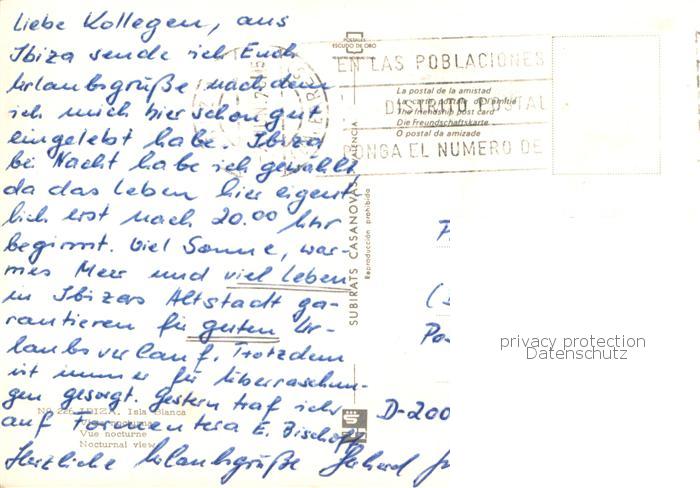 Liebe Kollegen, aus
Ibiza sende ich Euch
Urlaubsgrüße nachdem
ich mich hier schon gut
eingelebt habe. Ibiza
bei Nacht habe ich gewählt,
da das Leben hier eigent-
lich erst nach 20.00 Uhr
beginnt. Viel Sonne, war-
mes Meer und viel Leben
in Ibizas Altstadt ga-
rantieren für guten Ur-
laubsverlauf. Trotzdem
ist immer für Überraschun-
gen gesorgt. Gestern traf ich
auf Formentera E. Bischoff
Herzliche Urlaubsgrüße Gerhard
POSTALES
ESCUDO DE ORO
EN LAS POBLACIONES
DISTRITO POSTAL
PONGA EL NUMERO DE
La postal de la amistad
La carte postale de l'amitié
The friendship post card
Die Freundschaftskarte
O postal da amizade
SUBIRATS CASANOVAS VALENCIA
Reproducción prohibida
Nº 226 IBIZA. Isla Blanca
Vista nocturna
Vue nocturne
Nocturnal view
D-200
privacy protection
Datenschutz